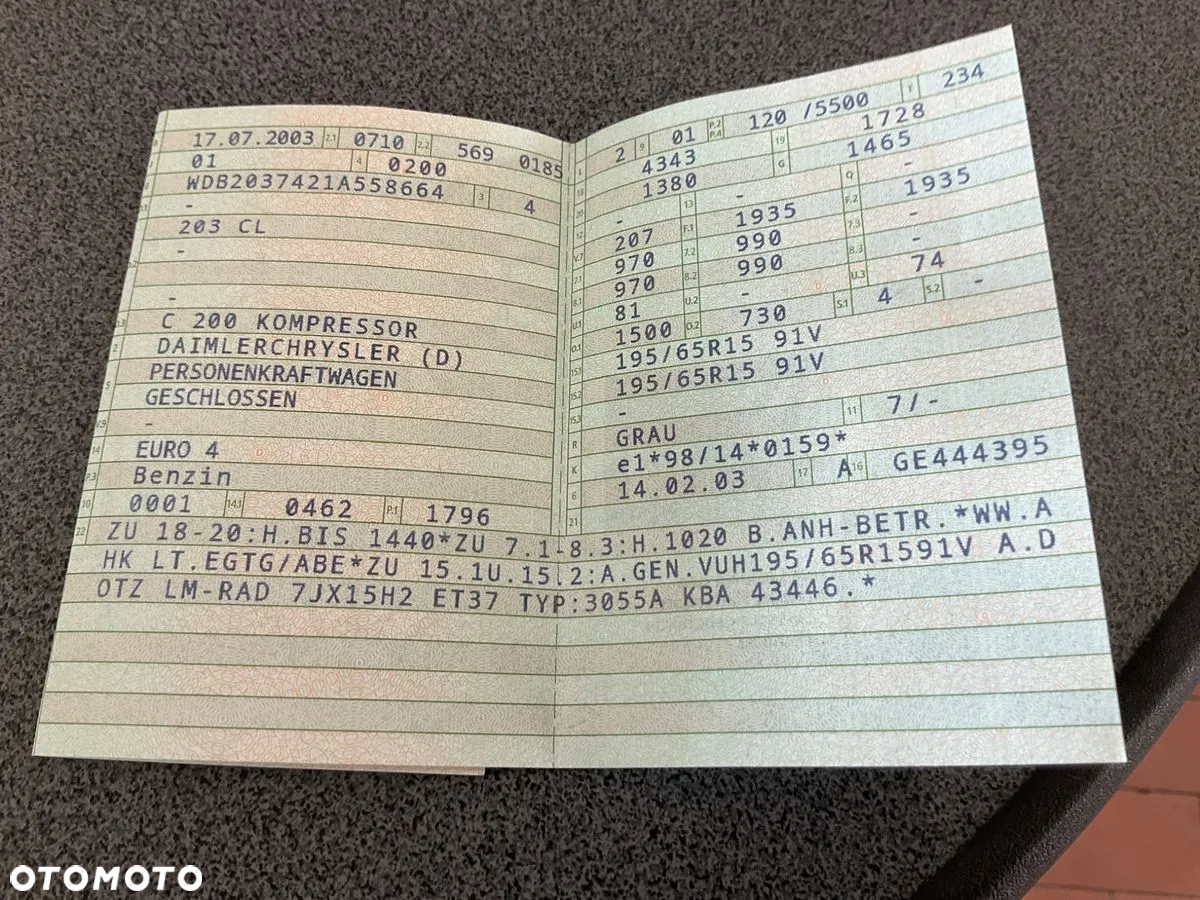 B 17.07.2003 2.1 0710 2.2 569 0185
J 01 4 0200
E WDB2037421A558664 3 4
-
203 CL
-
-
D.3 C 200 KOMPRESSOR
2 DAIMLERCHRYSLER (D)
PERSONENKRAFTWAGEN
5 GESCHLOSSEN
V.9 -
14 EURO 4
P.3 Benzin
10 0001 14.1 0462 P.1 1796
L 2 9 01 P.2 P.4 120 /5500 T 234
18 4343 19 1728
20 1380 G 1465
12 - 13 - Q -
V.7 207 F.1 1935 F.2 1935
7.1 970 7.2 990 7.3 -
8.1 970 8.2 990 8.3 -
U.1 81 U.2 - U.3 74
O.1 1500 O.2 730 S.1 4 S.2 -
15.1 195/65R15 91V
15.2 195/65R15 91V
15.3 -
R GRAU 11 7/-
K e1*98/14*0159*
6 14.02.03 17 A 16 GE444395
21
22 ZU 18-20:H.BIS 1440*ZU 7.1-8.3:H.1020 B.ANH-BETR.*WW.A
HK LT.EGTG/ABE*ZU 15.1U.15.2:A.GEN.VUH195/65R1591V A.D
OTZ LM-RAD 7JX15H2 ET37 TYP:3055A KBA 43446.*
OTOMOTO